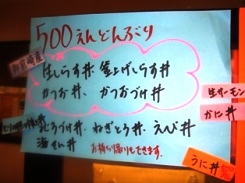 500えんどんぶり
御前崎産
生しらす丼 釜上げしらす丼
かつお丼、かつおづけ丼
生サーモン
かに丼
まぐろづけ丼、ねぎとろ丼、えび丼
海せん丼 お持ち帰りもできます。
うに丼